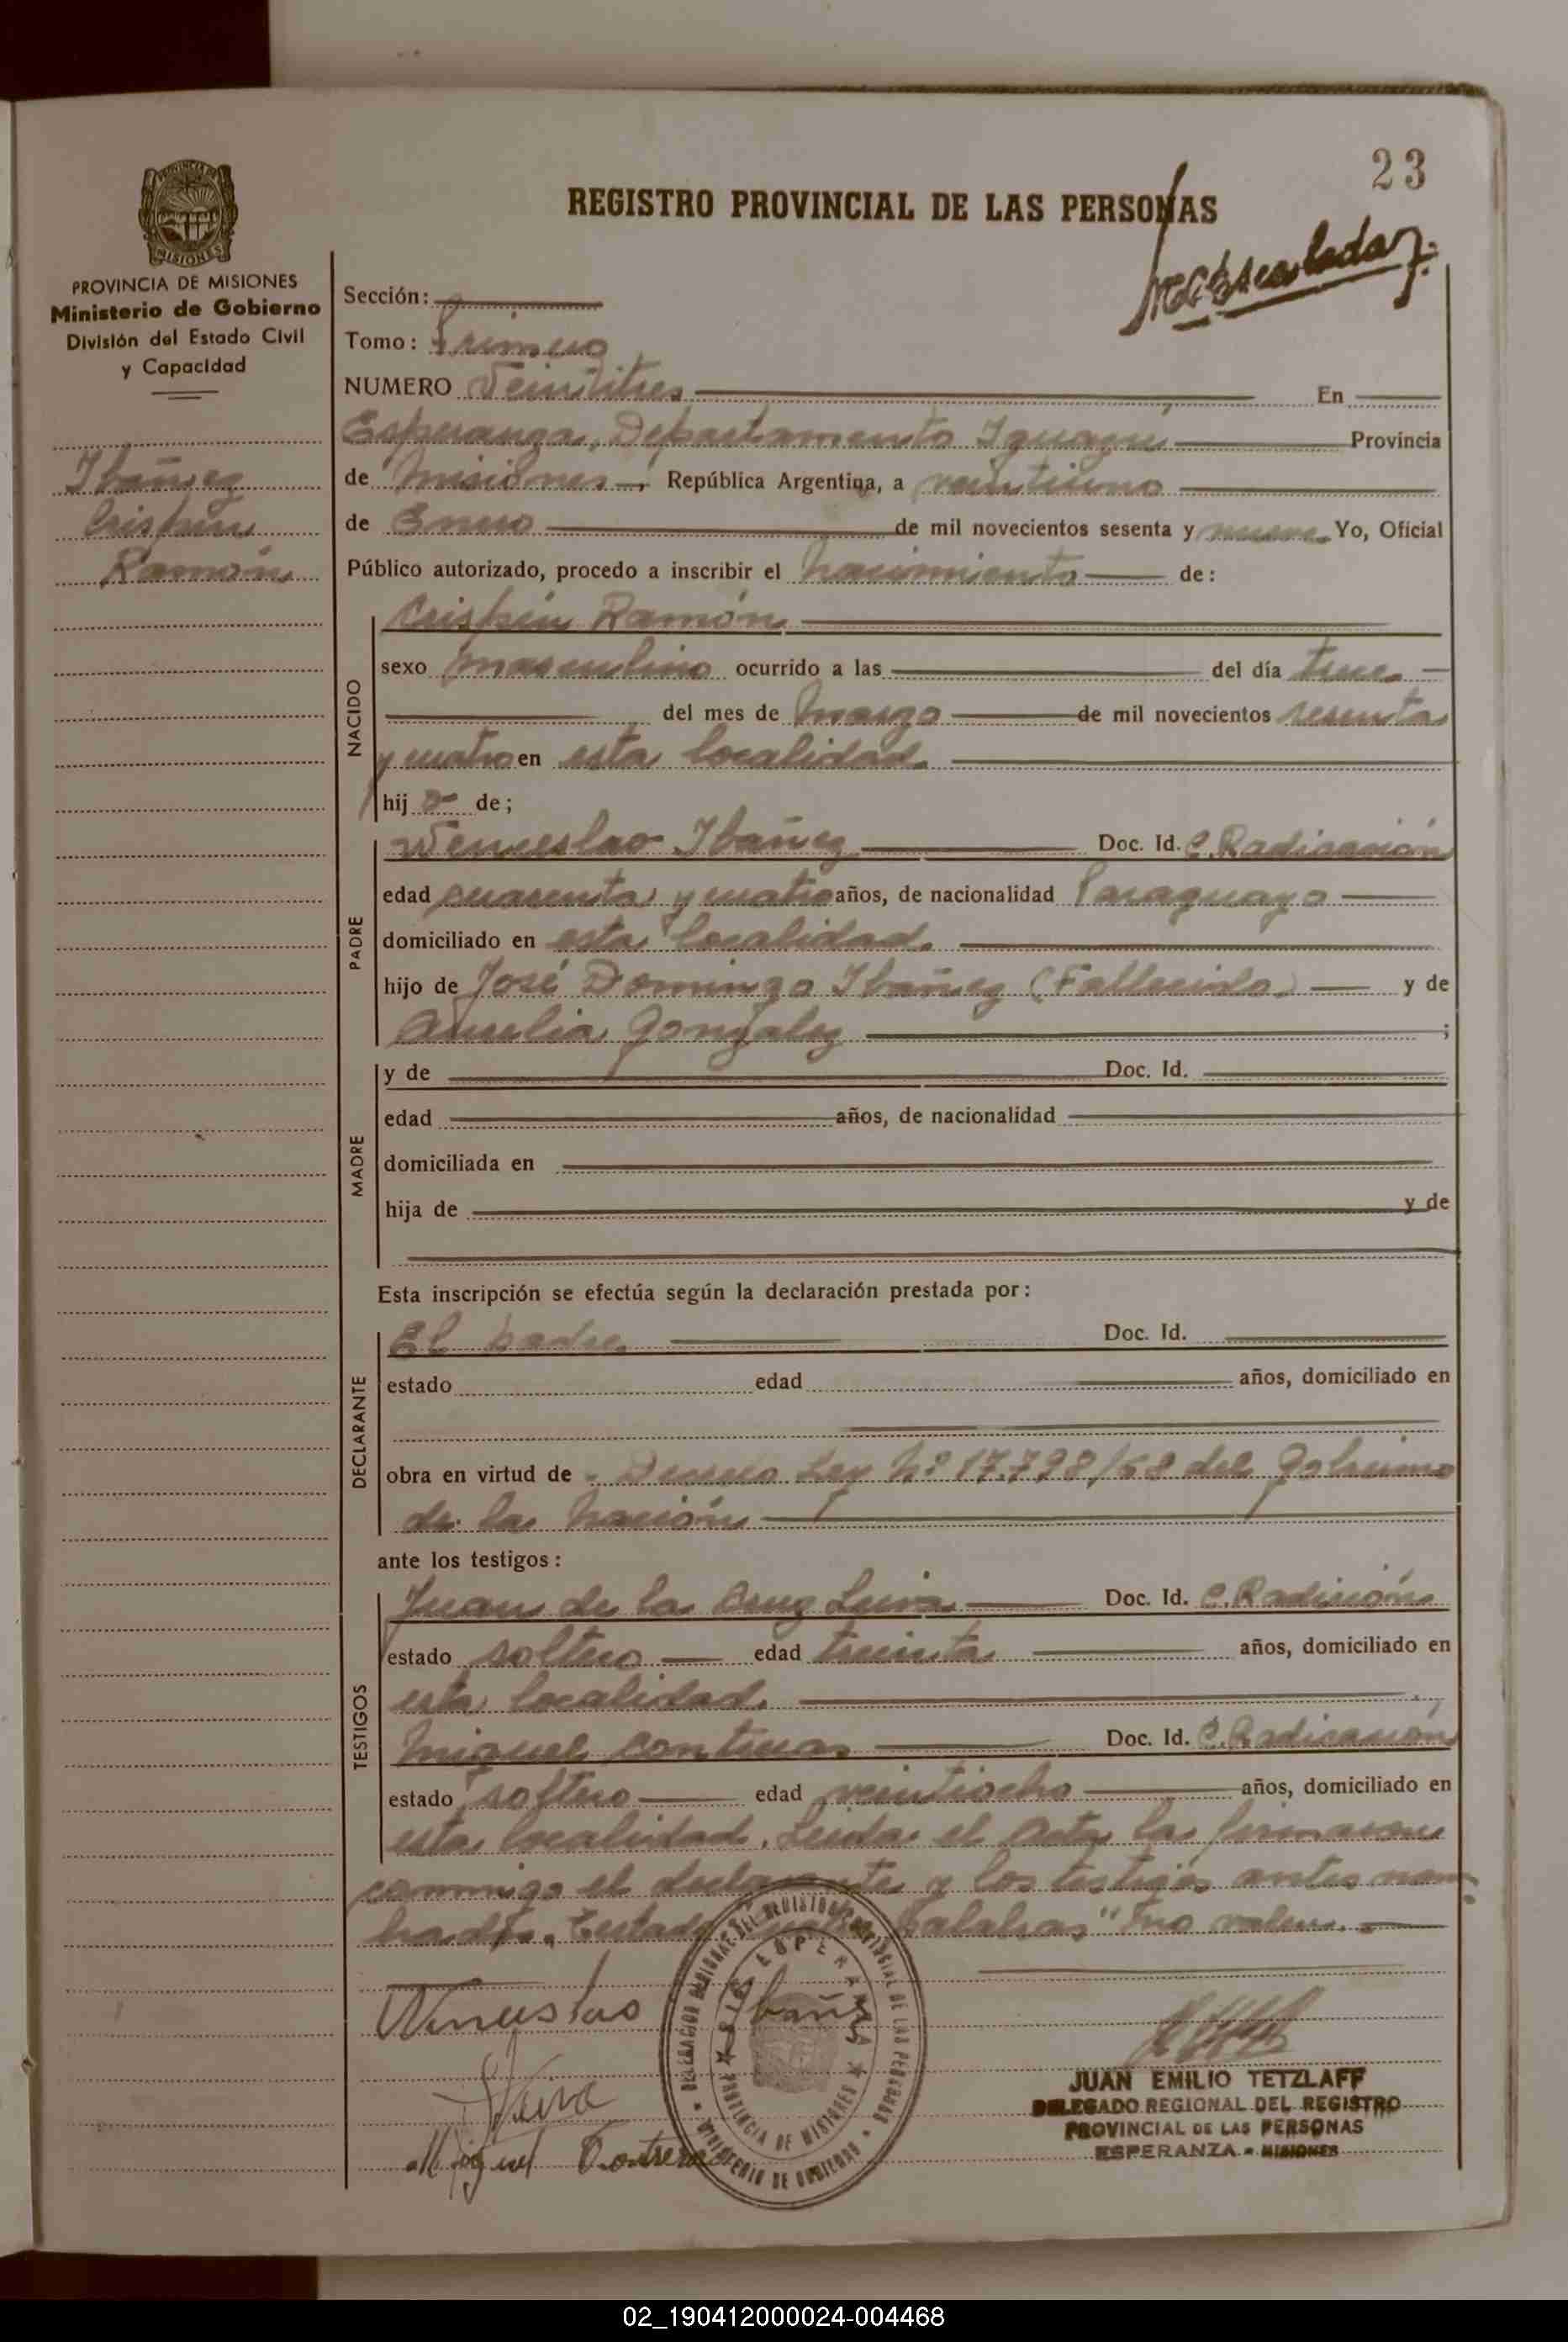 23
REGISTRO PROVINCIAL DE LAS PERSONAS
PROVINCIA DE
MISIONES
PROVINCIA DE MISIONES
Ministerio de Gobierno
División del Estado Civil
y Capacidad
Ibáñez
Crispín
Ramón
Sección:
Tomo: Primero
NUMERO Veintitres En
Esperanza, Departamento Iguazú Provincia
de Misiones, República Argentina, a veintiuno
de Enero de mil novecientos sesenta y nueve Yo, Oficial
Público autorizado, procedo a inscribir el nacimiento de:
NACIDO
Crispín Ramón
sexo masculino ocurrido a las del día trece
del mes de Marzo de mil novecientos sesenta
y cuatro en esta localidad.
hij o de;
PADRE
Wenceslao Ibáñez Doc. Id. C. Radicación
edad cuarenta y cuatro años, de nacionalidad Paraguayo
domiciliado en esta localidad.
hijo de José Domingo Ibáñez (Fallecido) y de
Aurelia González ;
MADRE
y de Doc. Id.
edad años, de nacionalidad
domiciliada en
hija de y de
Esta inscripción se efectúa según la declaración prestada por:
DECLARANTE
El padre Doc. Id.
estado edad años, domiciliado en
obra en virtud de Decreto Ley Nº 17.798/68 del Gobierno
de la Nación
ante los testigos:
TESTIGOS
Juan de la Cruz Leiva Doc. Id. C. Radición
estado soltero edad treinta años, domiciliado en
esta localidad.
Miguel Contreras Doc. Id. C. Radicación
estado soltero edad veintiocho años, domiciliado en
esta localidad. Leida el Acta la firmaron
conmigo el declarante y los testigos antes nom-
brados. palabras" no valen.
Wenceslao Ibáñez
Leiva
Miguel Contreras
ESPERANZA
PROVINCIA DE MISIONES
MINISTERIO DE GOBIERNO
JUAN EMILIO TETZLAFF
DELEGADO REGIONAL DEL REGISTRO
PROVINCIAL DE LAS PERSONAS
ESPERANZA - MISIONES
02_190412000024-004468